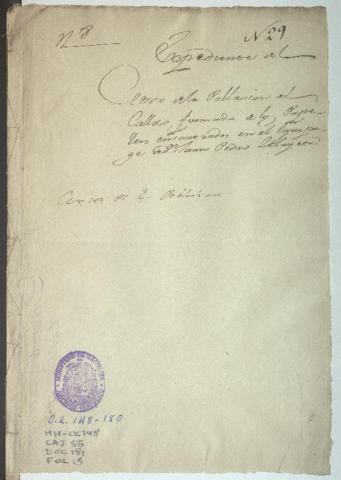 N 8
N. 29
Expediente al
Censo de la Poblacion del
Callao, formado a los Pape-
les encontrados en el Equipa-
ge de Dn. Juan Pedro
Censo de la Poblacion
O.L. 148-180
MH-OL 148
CAJ 55
DOC 181
FOL 15